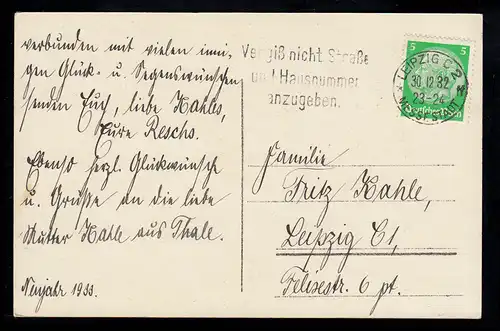 verbunden mit vielen inni-
gen Glück- u. Segenswünschen
senden Euch, liebe Kahles,
Eure Reschs.
Ebenso herzl. Glückwünsche
u. Grüße an die liebe
Mutter Kahle aus Thale.
Neujahr 1933.
Vergiß nicht Straße
und Hausnummer
anzugeben.
5 5
LEIPZIG C 2
30.12.32
23-24
MESSESTADT
Deutsches Reich
Familie
Fritz Kahle,
Leipzig C1,
Felixestr. 6 pt.